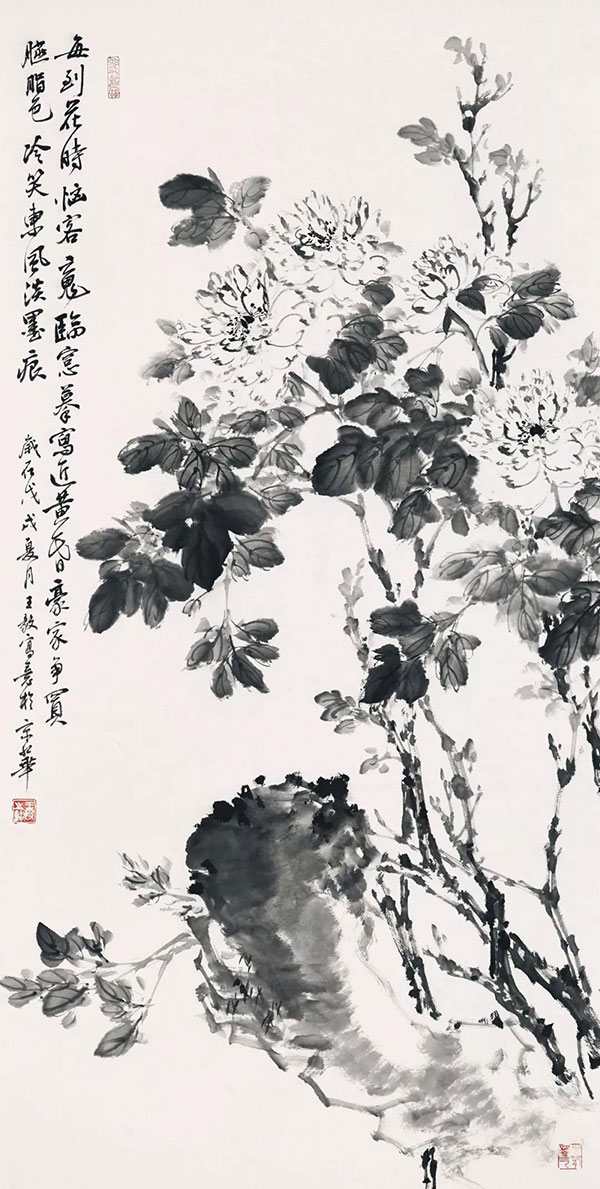 每到花時恼客魂臨窓摹寫近黄昏豪家争買
臙脂色冷笑東風淡墨痕
歲在戊戌夏月王寫意於京華